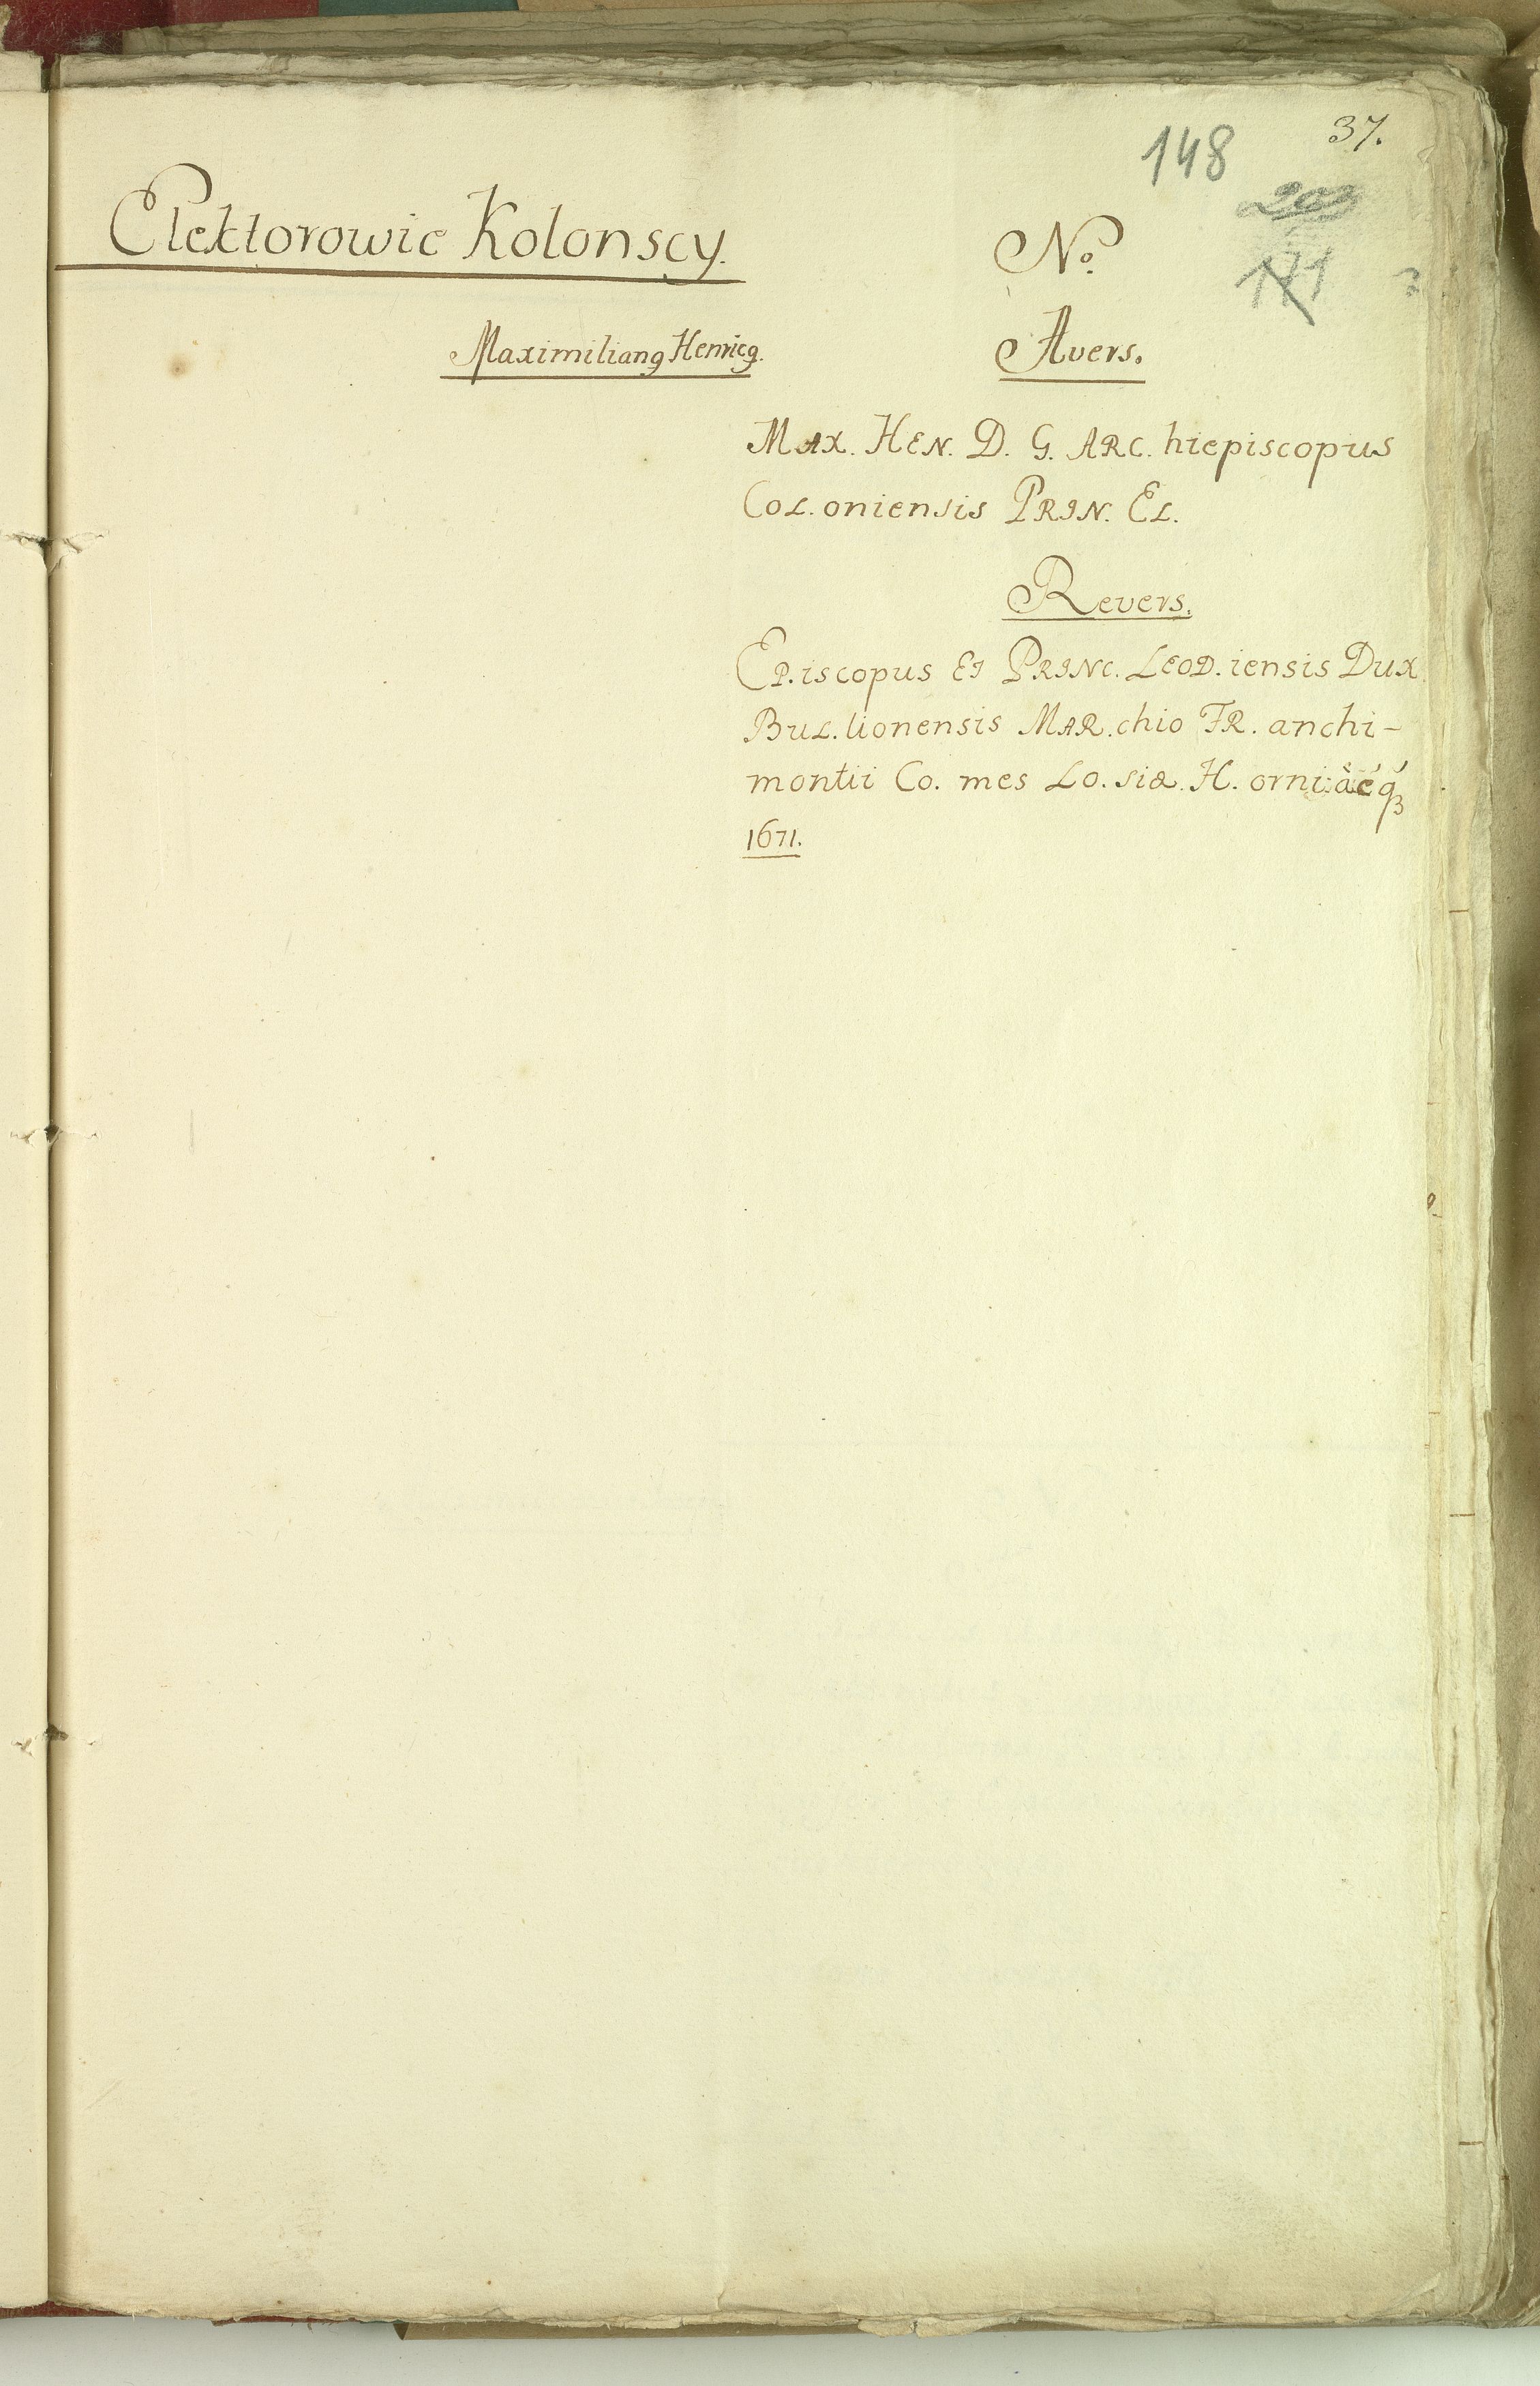 37.
148
203
171
Elektorowie Kolonscy.
No.
Maximilianꝯ Henricꝯ.
Avers.
MAX. HEN. D. G. ARC. hiepiscopus
COL. oniensis PRIN. EL.
Revers.
EP. iscopus ET PRINC. LEOD. iensis DUX
BUL. lionensis MAR. chio FR. anchi-
montii CO. mes LO. siæ. H. orni
1671.